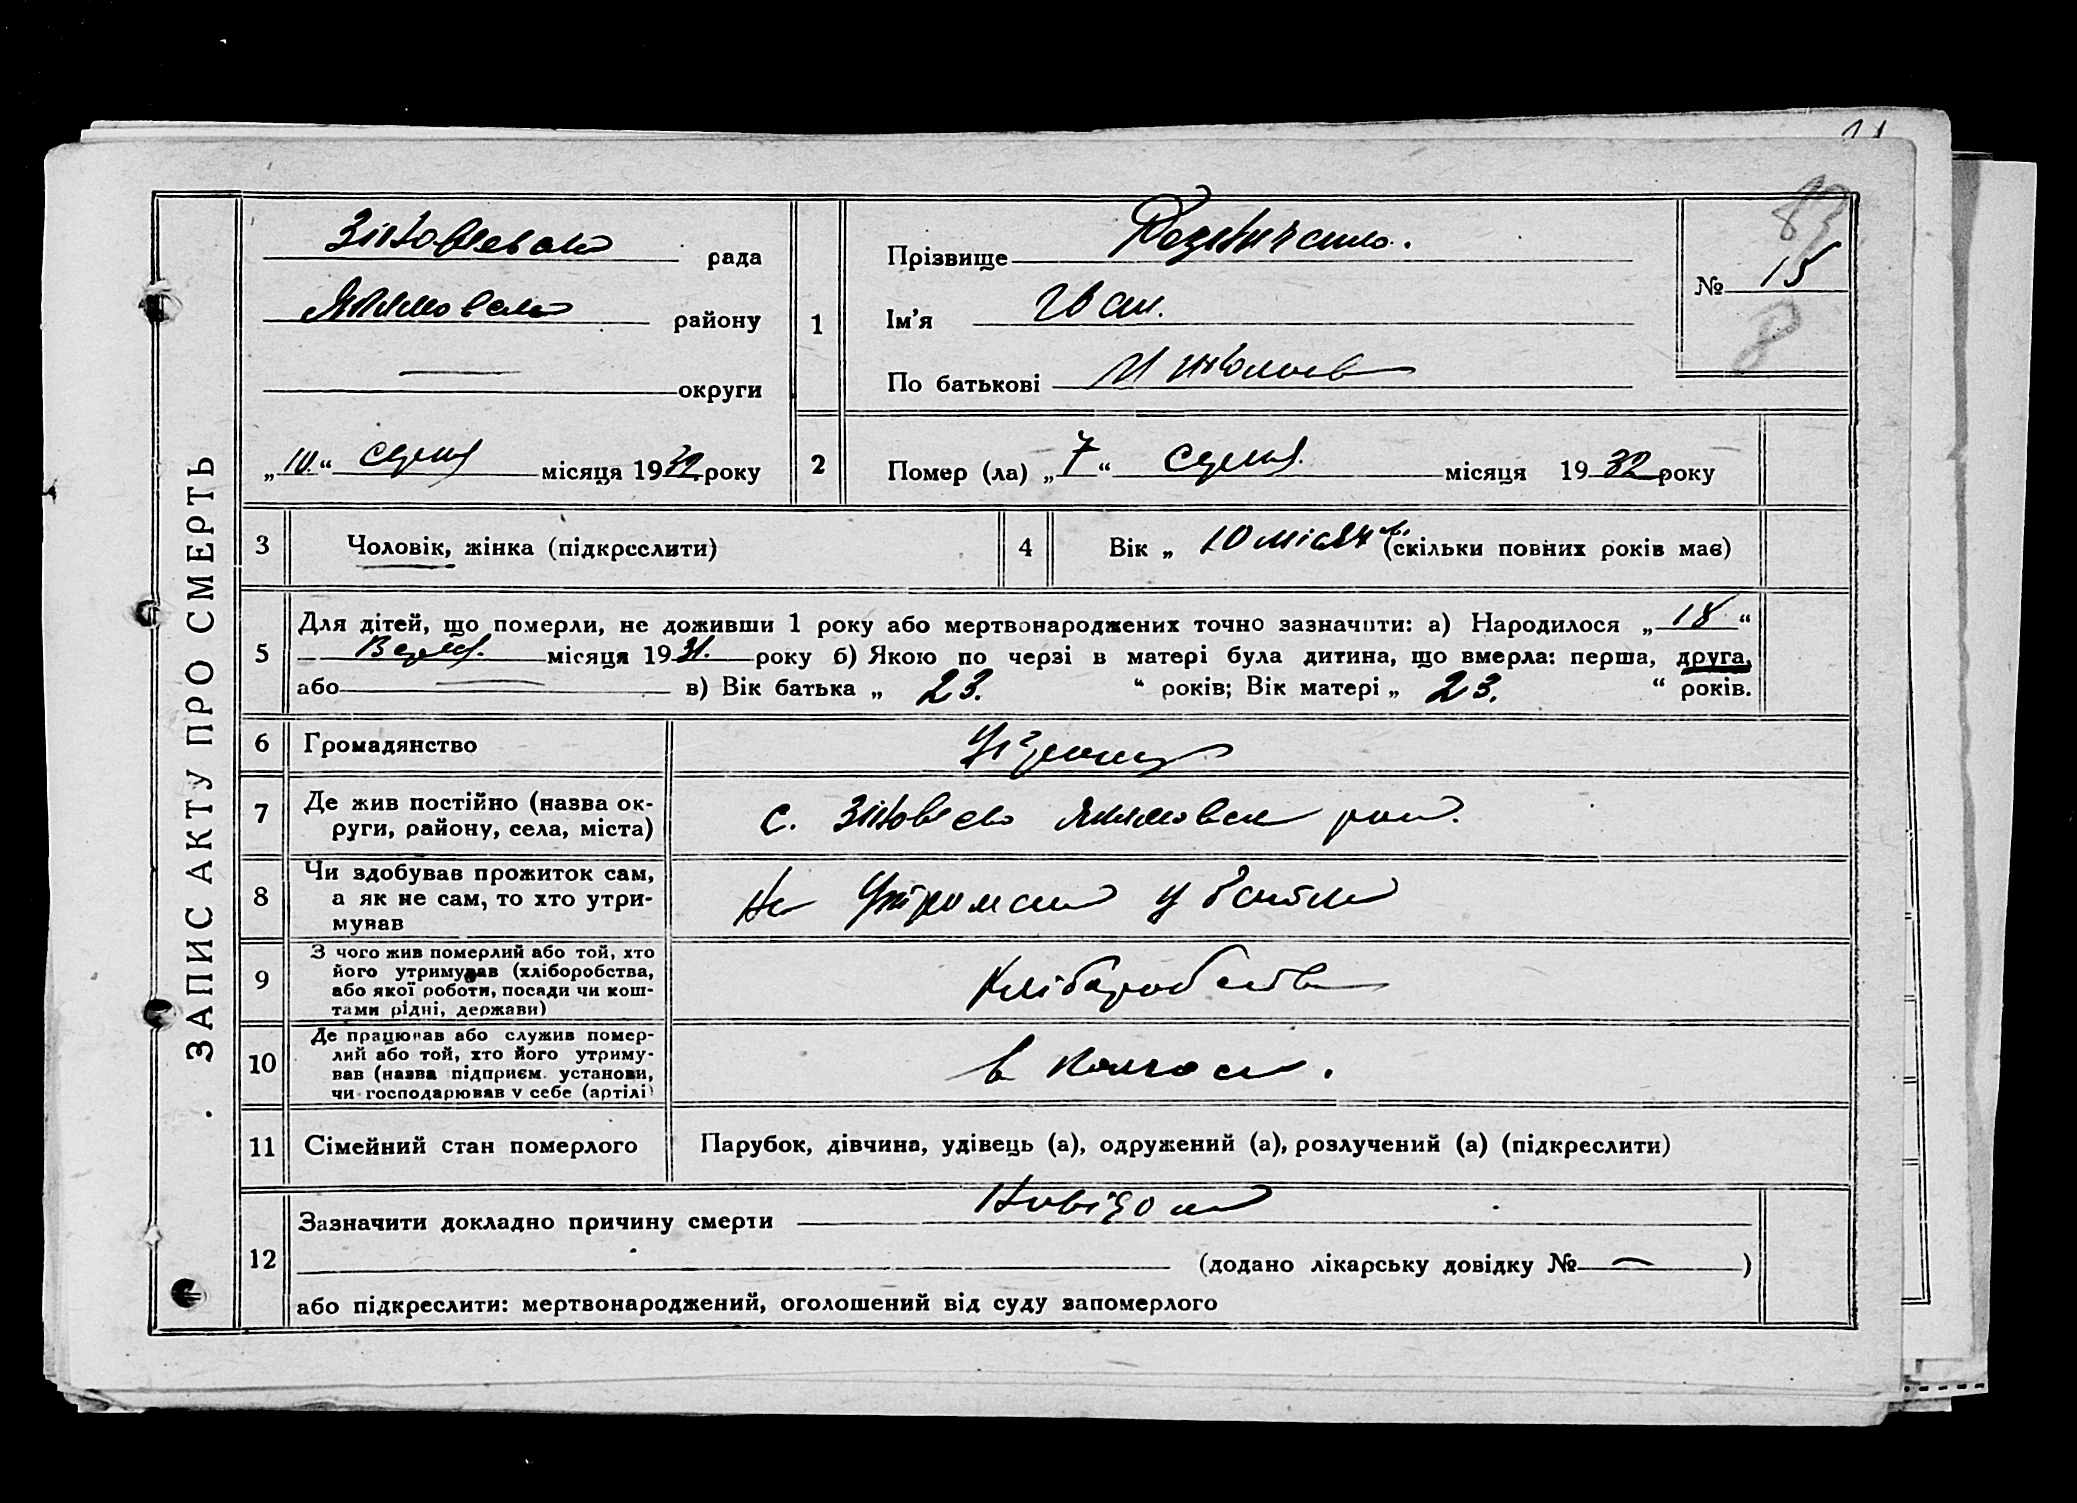 ЗАПИС АКТУ ПРО СМЕРТЬ
рада
району
округи
„10.“ серпня місяця 1932 року
1
Прізвище
Ім'я Іван.
По батькові
№ 15
83
8
2
Помер (ла) „7“ серпня місяця 1932 року
3
Чоловік, жінка (підкреслити)
4
Вік „ 10 місяців (скільки повних років має)
5
Для дітей, що померли, не доживши 1 року або мертвонароджених точно зазначити: а) Народилося „18“
місяця 1931. року б) Якою по черзі в матері була дитина, що вмерла: перша, друга,
або — в) Вік батька „ 23. “ років; Вік матері „ 23. “ років.
6
Громадянство
7
Де жив постійно (назва ок-
руги, району, села, міста)
с. рай.
8
Чи здобував прожиток сам,
а як не сам, то хто утри-
мував
На утриманні у батька
9
З чого жив померлий або той, хто
його утримував (хліборобства,
або якої роботи, посади чи кош-
тами рідні, держави)
Хліборобства
10
Де працював або служив помер-
лий або той, хто його утриму-
вав (назва підприєм. установи,
чи господарював у себе (артілі)
в колгоспі.
11
Сімейний стан померлого
Парубок, дівчина, удівець (а), одружений (а), розлучений (а) (підкреслити)
12
Зазначити докладно причину смерти Невідома
(додано лікарську довідку № — )
або підкреслити: мертвонароджений, оголошений від суду запомерлого